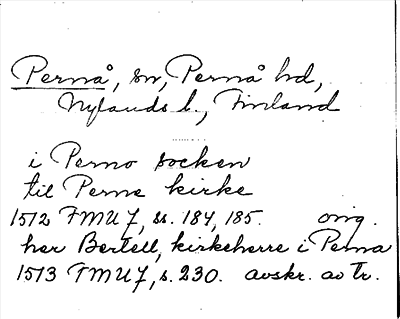 Pernå, sn, Pernå hd,
Nylands l., Finland
i Perno socken
til Perne kirke
1512 FMU 7, ss. 184, 185. orig.
her Bertell, kirkeherre i Perna
1513 FMU 7, s. 230. avskr. av tr.